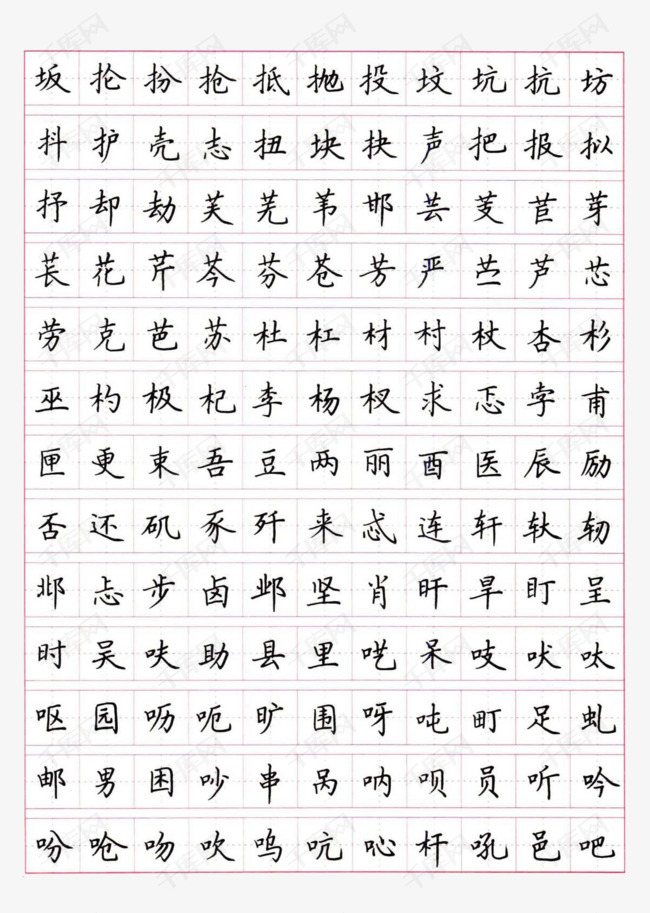 坂 抡 扮 抢 抵 抛 投 坟 坑 抗 坊
抖 护 壳 志 扭 块 抉 声 把 报 拟
抒 却 劫 芙 芜 苇 邯 芸 芰 苣 芽
苌 花 芹 芩 芬 苍 芳 严 苎 芦 芯
劳 克 芭 苏 杜 杠 材 村 杖 杏 杉
巫 杓 极 杞 李 杨 杈 求 忑 孛 甫
匣 更 束 吾 豆 两 丽 酉 医 辰 励
否 还 矶 豕 歼 来 忒 连 轩 轪 轫
邶 忐 步 卤 邺 坚 肖 旰 旱 盯 呈
时 吴 呋 助 县 里 呓 呆 吱 吠 呔
呕 园 呖 呃 旷 围 呀 吨 町 足 虬
邮 男 困 吵 串 呙 呐 呗 员 听 吟
吩 呛 吻 吹 呜 吭 吣 杆 吼 邑 吧